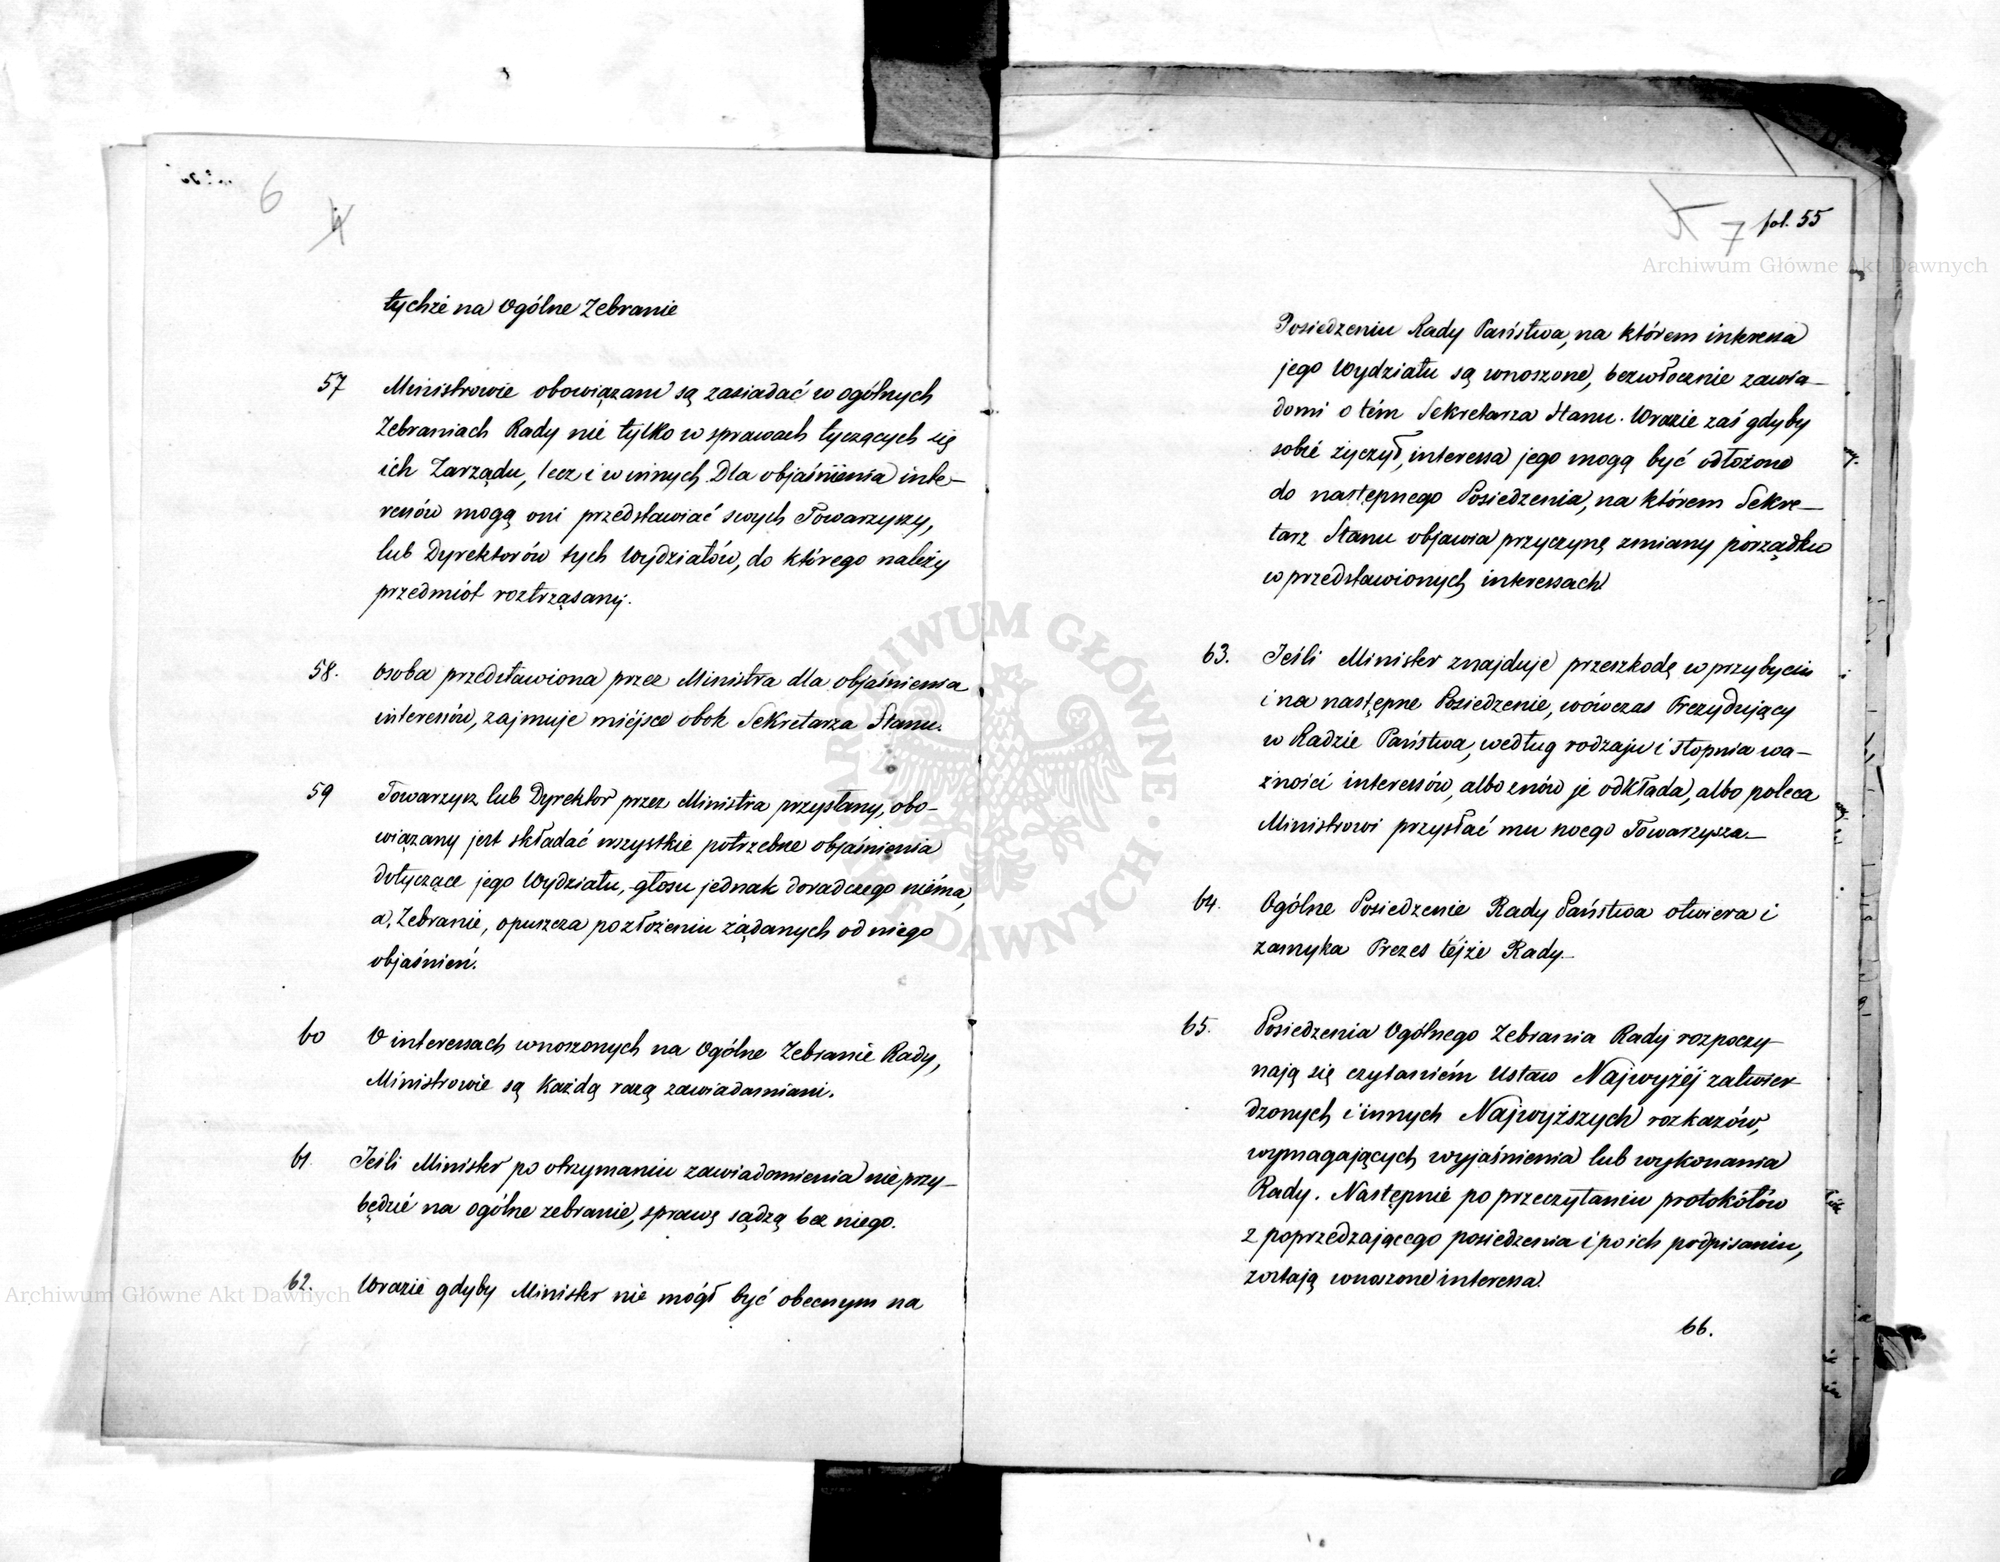 6
4
tychże na Ogólne Zebranie
57 Ministrowie obowiązani są zasiadać w ogólnych
Zebraniach Rady nie tylko w sprawach tyczących się
ich Zarządu, lecz i w innych. Dla objaśnienia inte–
ressów mogą oni przedstawiać swych Towarzyszy,
lub Dyrektorów tych Wydziałów, do którego należy
przedmiót roztrząsany.
58. Osoba przedstawiona przez Ministra dla objaśnienia
interessów, zajmuje miéjsce obok Sekretarza Stanu.
59 Towarzysz lub Dyrektor przez Ministra przysłany, obo–
wiązany jest składać wszystkie potrzebne objaśnienia
dotyczące jego Wydziału, głosu jednak doradczego niéma,
a, Zebranie, opuszcza po złożeniu żądanych od niego
objaśnień.
60 O interessach wnoszonych na Ogólne Zebranie Rady,
Ministrowie są każdą razą zawiadamiani.
61. Jeśli Minister po otrzymaniu zawiadomienia nie przy–
będzie na ogólne zebranie, sprawę sądzą bez niego.
62. Wrazie gdyby Minister nie mógł być obecnym na
Archiwum Główne Akt Dawnych
5 7 fol. 55
Archiwum Główne Akt Dawnych
Posiedzeniu Rady Państwa, na którem interessa
jego Wydziału są wnoszone, bezwłocznie zawia–
domi o tém Sekretarza Stanu. Wrazie zaś gdyby
sobie życzył, interessa jego mogą być odłożone
do następnego Posiedzenia, na którem Sekre–
tarz Stanu objawia przyczynę zmiany porządku
w przedstawionych interessach
63. Jeśli Minister znajduje przeszkodę w przybyciu
i na następne Posiedzenie, wówczas Prezydujący
w Radzie Państwa, według rodzaju i stopnia wa–
żności interessów, albo znów je odkłada, albo poleca
Ministrowi przysłać mu swego Towarzysza.–
64. Ogólne Posiedzenie Rady Państwa otwiera i
zamyka Prezes téjże Rady.–
65. Posiedzenia Ogólnego Zebrania Rady rozpoczy–
nają się czytaniém Ustaw Najwyżéj zatwier–
dzonych i innych Najwyższych rozkazów,
wymagających wyjaśnienia lub wykonania
Rady. Następnie po przeczytaniu protokółów
z poprzedzającego posiedzenia i po ich podpisaniu,
zostają wnoszone interessa.
66.
ARCHIWUM GŁÓWNE AKT DAWNYCH